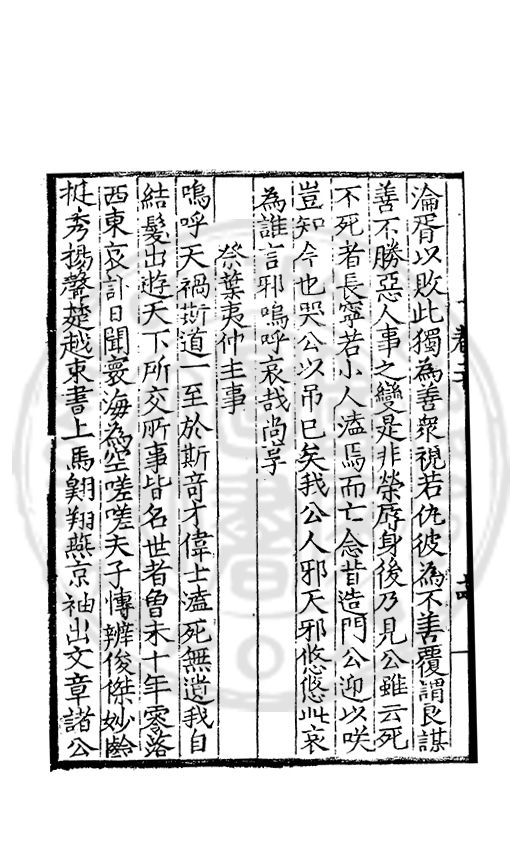 淪胥以敗此獨為善衆視若仇彼為不善覆謂良謀
善不勝惡人事之變是非榮辱身後乃見公雖云死
不死者長寧若小人溘焉而亡念昔造門公迎以咲
豈知今也哭公以吊已矣我公人邪天邪悠悠此哀
為誰言邪嗚呼哀哉尚享
祭葉夷仲主事
嗚呼天禍斯道一至於斯奇才偉士溘死無遺我自
結髮出遊天下所交所事皆名世者曾未十年零落
西東哀訃日聞寰海為空嗟嗟夫子慱辨俊傑妙齡
挺秀揚聲楚越束書上馬翱翔燕京袖出文章諸公